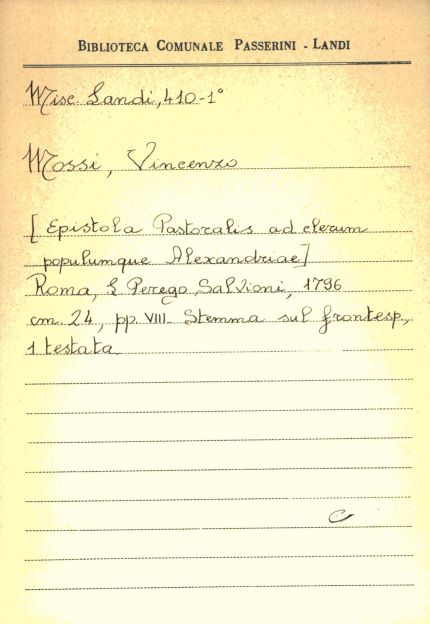 BIBLIOTECA COMUNALE PASSERINI - LANDI
Misc. Landi, 410-1°
Mossi, Vincenzo
[Epistola Pastoralis ad clerum
populumque Alexandriae]
Roma, L. Perego Salvioni, 1796
cm. 24, pp. VIII. Stemma sul frontesp.,
1 testata
C